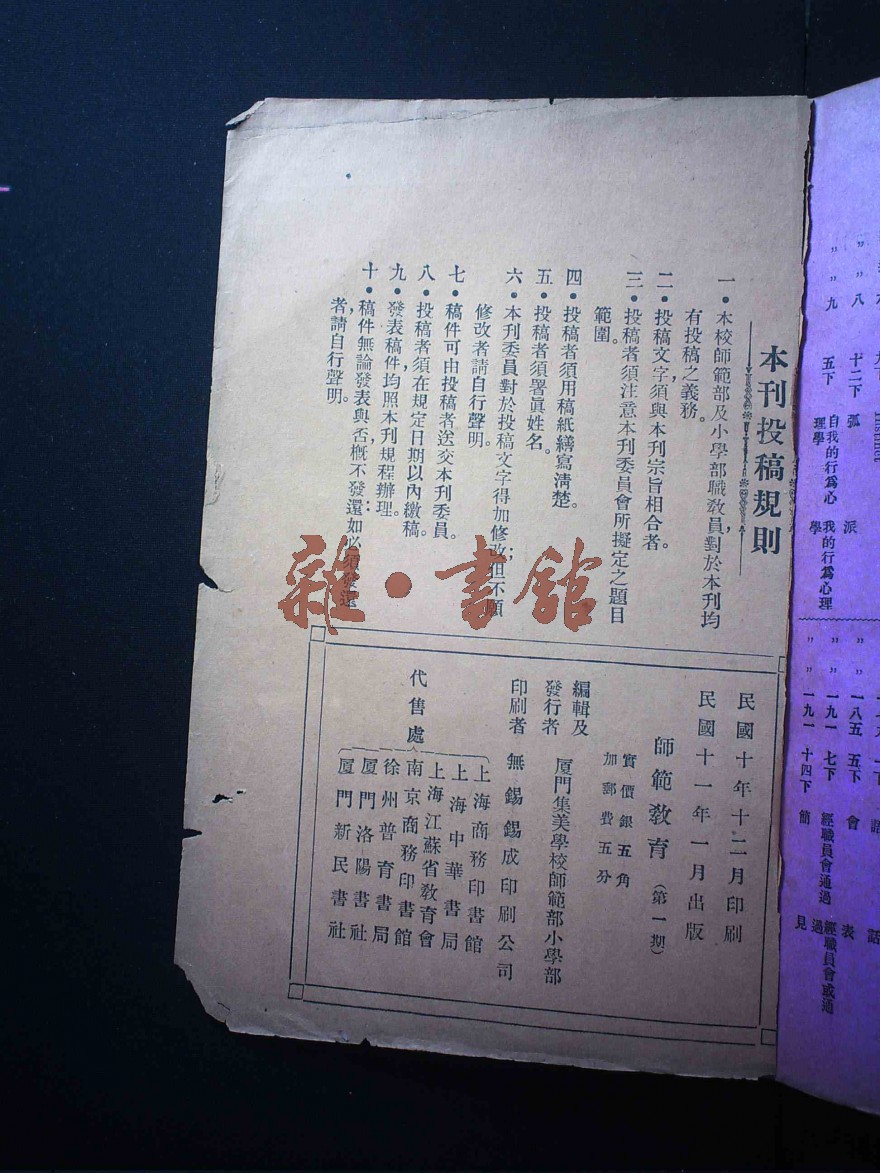 本刊投稿規則
一．本校師範部及小學部職教員，對於本刊均
有投稿之義務。
二．投稿文字，須與本刊宗旨相合者。
三．投稿者須注意本刊委員會所擬定之題目
範圍。
四．投稿者須用稿紙繕寫清楚。
五．投稿者須署眞姓名。
六．本刊委員對於投稿文字得加修改；但不願
修改者請自行聲明。
七．稿件可由投稿者送交本刊委員。
八．投稿者，須在規定日期以內繳稿。
九．發表稿件均照本刊規程辦理。
十．稿件，無論發表與否，槪不發還；如必須發還
者，請自行聲明。
民國十年十二月印刷
民國十一年一月出版
師範教育（第一期）
實價銀五角
加郵費五分
編輯及
發行者 厦門集美學校師範部小學部
印刷者 無錫錫成印刷公司
代售處
上海商務印書館
上海中華書局
上海江蘇省教育會
南京商務印書館
徐州普育書局
厦門洛陽書社
厦門新民書社
雜·書館
〃 八 十二下 弧 派
〃 九 五下 自我的行爲心理學 我的行爲心理學
〃 一八五 五下 會 表
〃 一九一 七下 經職員會通過 經職員會或通過
〃 一九一 十四下 簡 見
語 話